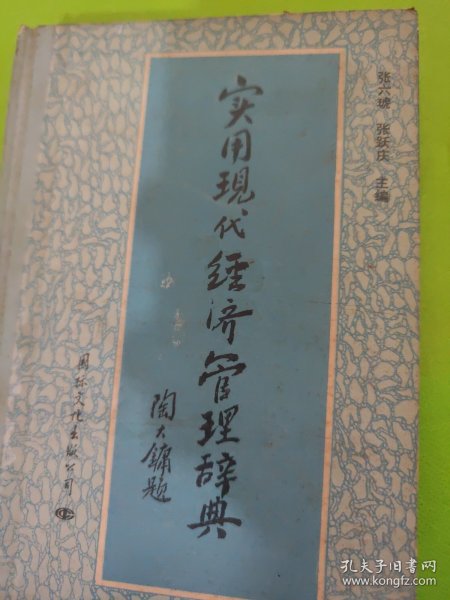 张六琥 张跃庆 主编
实用現代经济管理辞典
陶大镛题
国际文化出版公司
孔夫子旧书网
www.kongfz.com